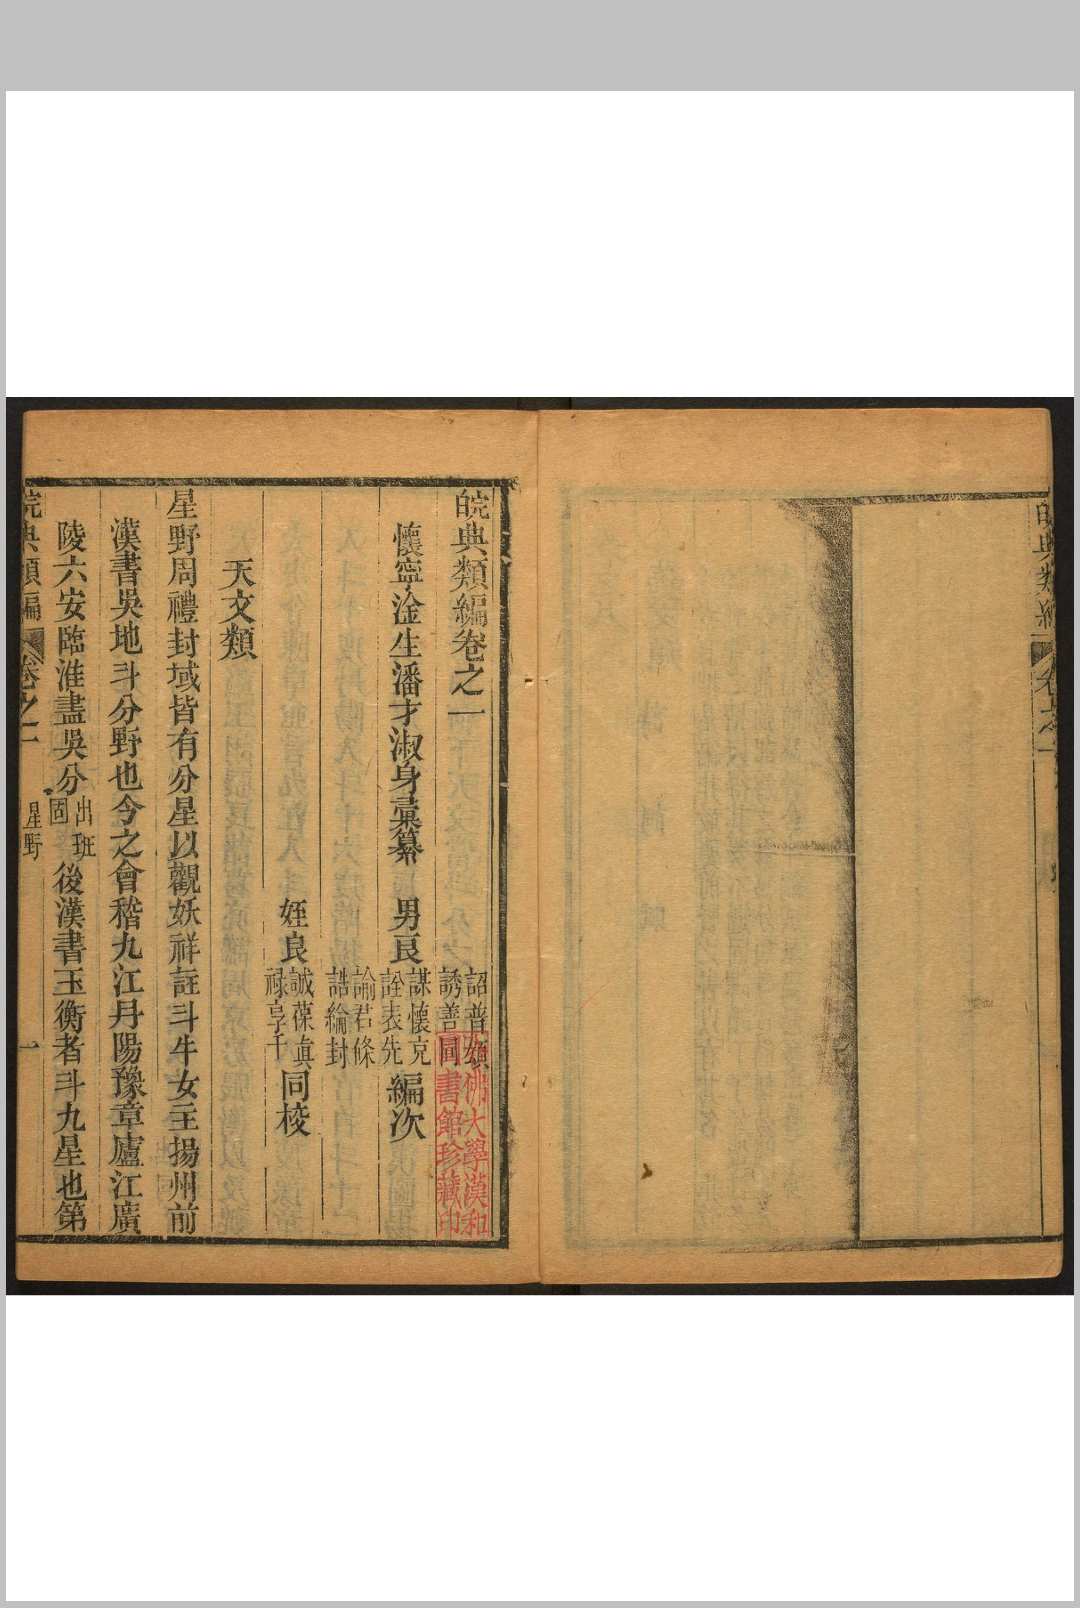 皖典類編 卷之一
皖典類編卷之一
懷寧淦生潘才淑身彙纂 男良
詔普頴
誘善
謀懷克
詮表先
諭君條
誥綸封
編次
姪良
誠葆真
祿享千
同校
天文類
星野周禮封域皆有分星以觀妖祥註斗牛女主揚州前
漢書吳地斗分野也今之會稽九江丹陽豫章廬江廣
陵六安臨淮盡吳分出班固後漢書玉衡者斗九星也第
皖典類編 卷之一 星野 一
佛大學漢和
圖書館珍藏印